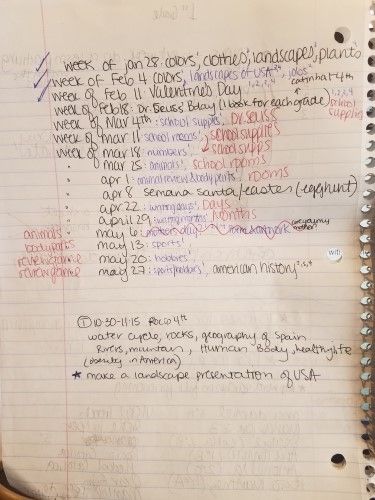 week of Jan 28: colors¹, clothes², landscapes³, plants
week of Feb 4 colors¹, landscapes of USA²⁴, jobs²
week of Feb 11 Valentine's Day 1,2,3,4 cat in hat 4th
week of Feb 18: Dr. Seuss Bday (1 book for each grade) 1,2,3,4 school supplies
week of Mar 4th: school supplies¹, Dr. Seuss
week of mar 11 school rooms¹, school supplies
week of mar 18: numbers¹, school supps
" mar 25: animals¹, school rooms
" apr 1: animal review & body parts rooms
" apr 8 semana santa/easter (egg hunt)
" apr 22: writing days¹, Days
" april 29: writing months¹ Months
animals - may 6:
body parts - may 13: sports¹
review game - may 20: hobbies¹
review game may 27: sports/hobbies¹, american history²,³,⁴
wifi
① 10:30-11:15 Rocio 4th
water cycle, rocks, geography of Spain
Rivers, mountain, Human Body, healthy life
(obesity in America)
★ make a landscape presentation of USA